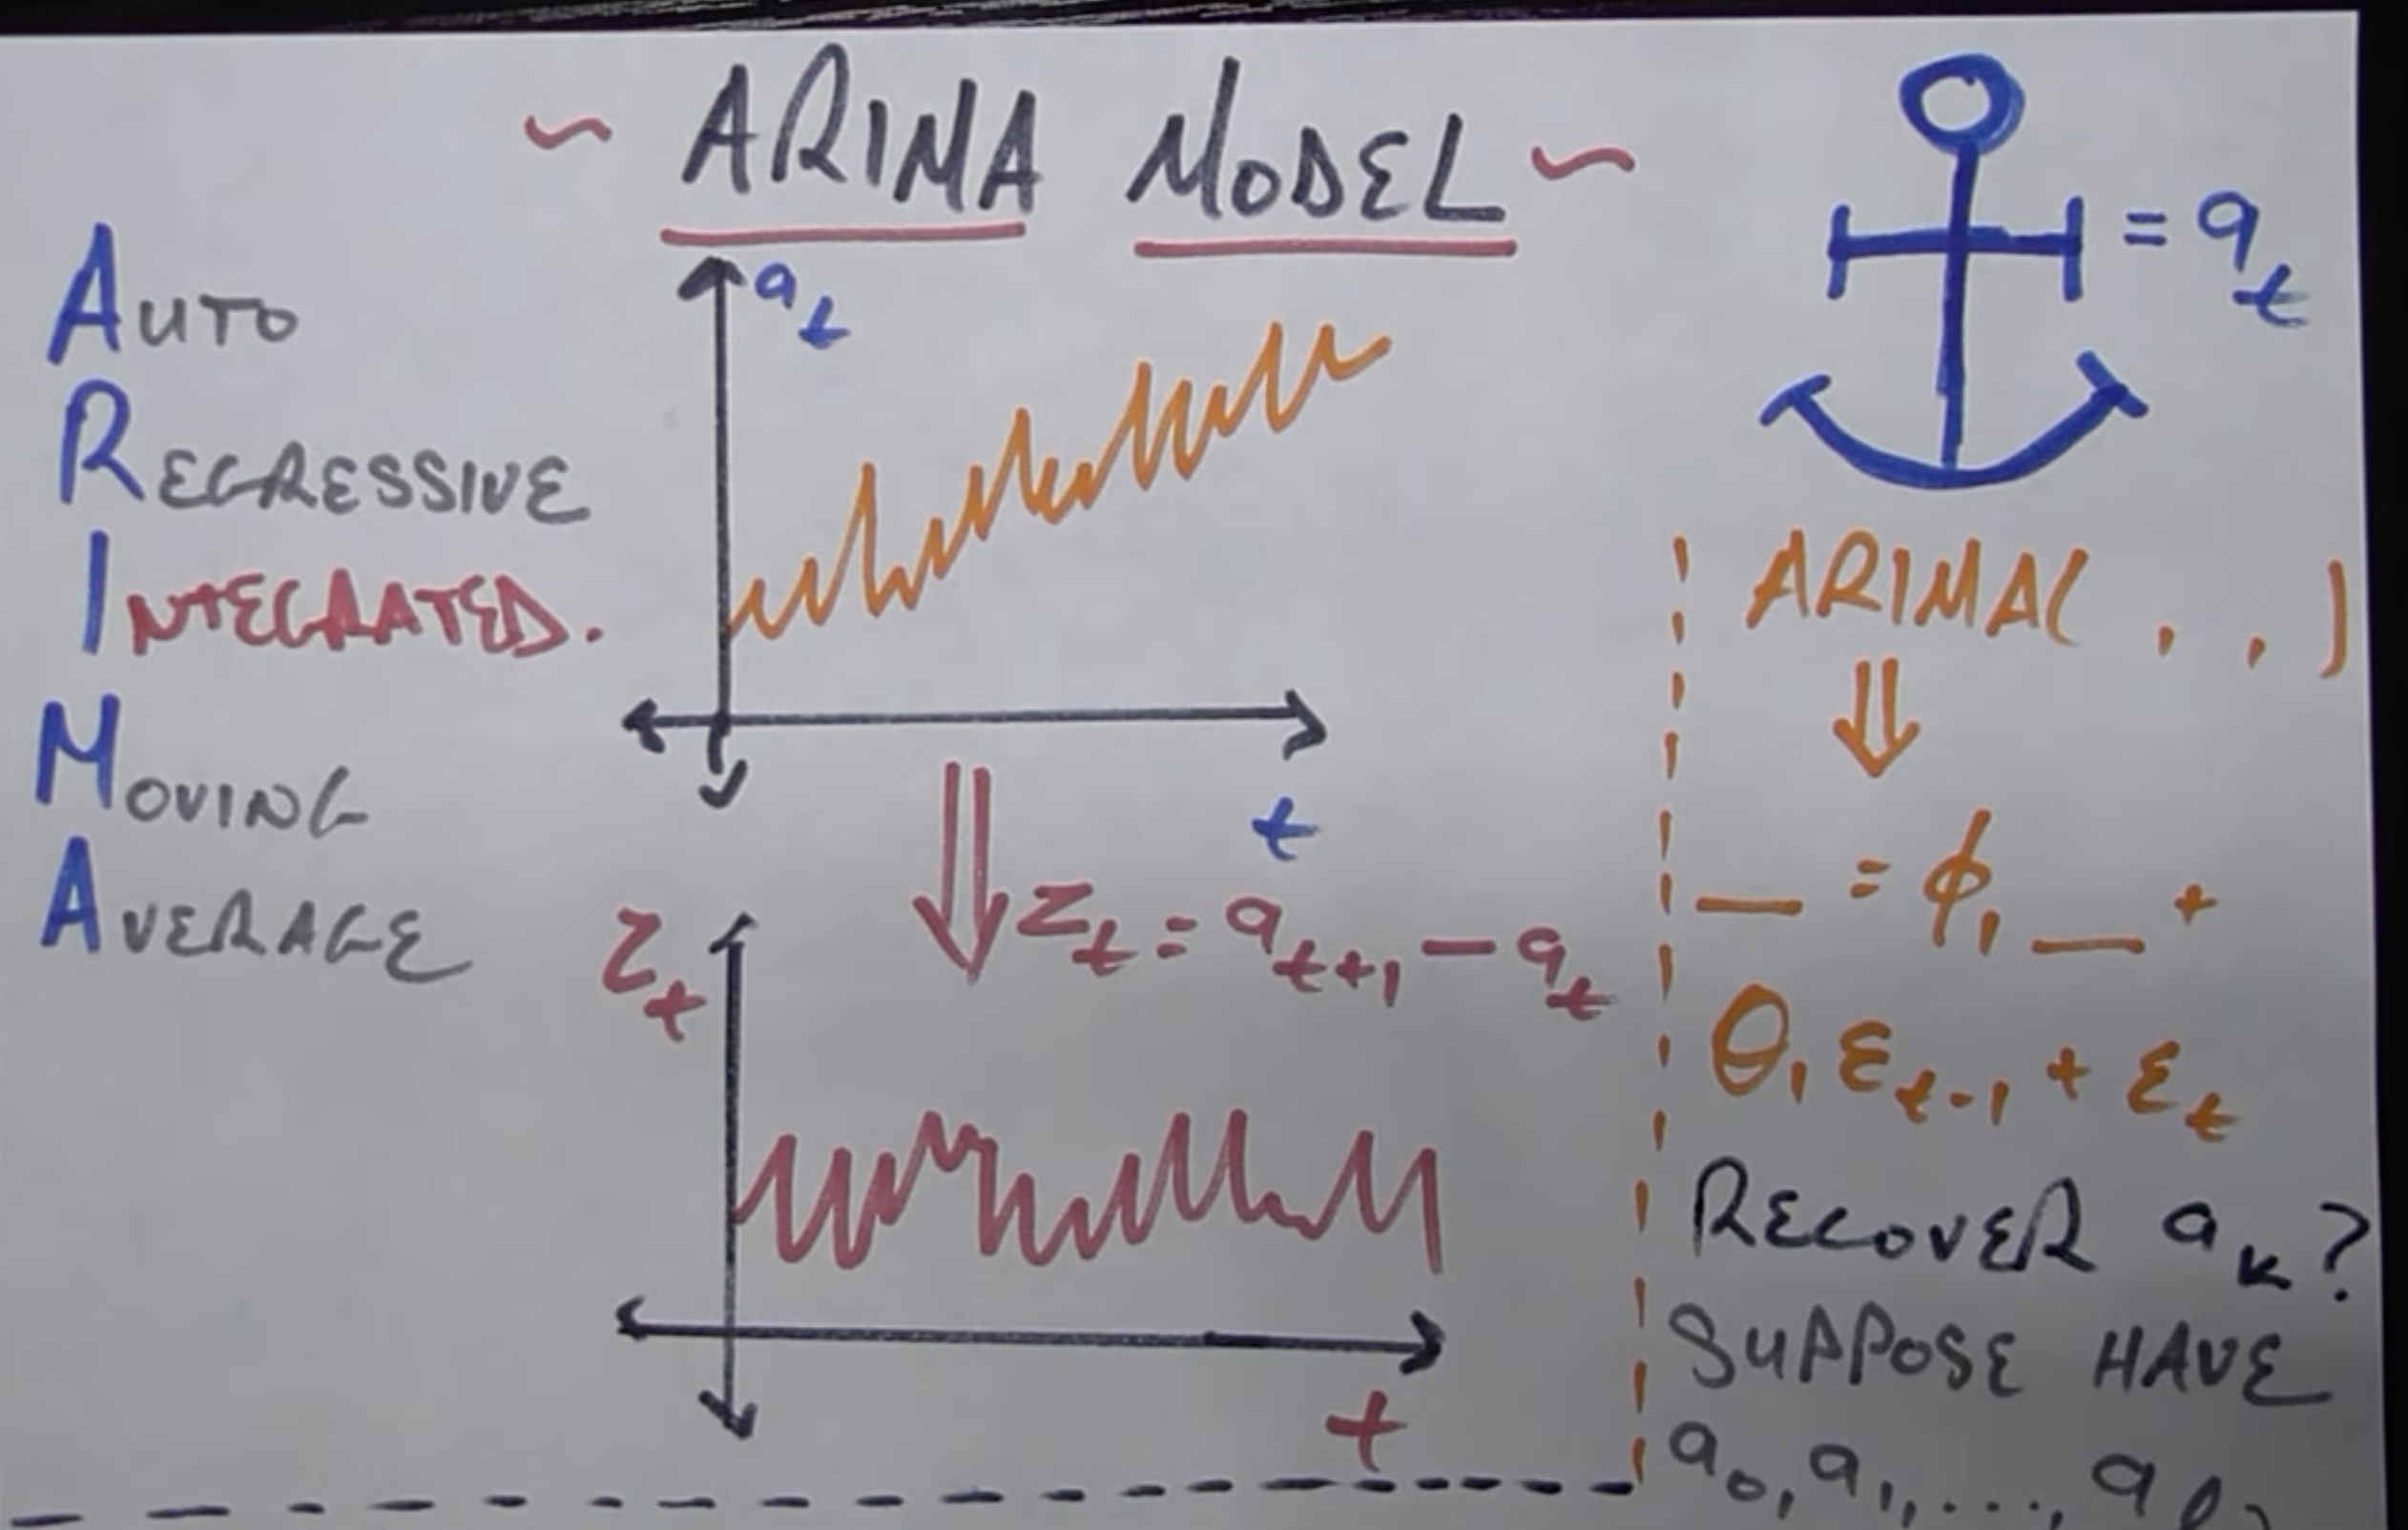 ~ ARIMA MODEL ~
AUTO
REGRESSIVE
INTEGRATED.
MOVING
AVERAGE
a_t
t
z_t = a_{t+1} - a_t
z_t
t
= a_t
ARIMA( , , )
⇓
__ = φ_1 __ +
θ_1 ε_{t-1} + ε_t
RECOVER a_k?
SUPPOSE HAVE
a_0, a_1, ..., a_l